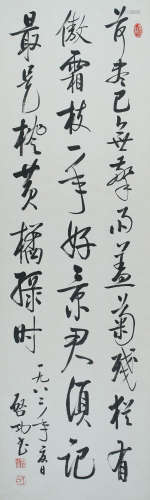 荷盡已無擎雨蓋菊殘猶有
傲霜枝一年好景君須記
最是橙黄橘緑时
一九八三年夏日
啟功書